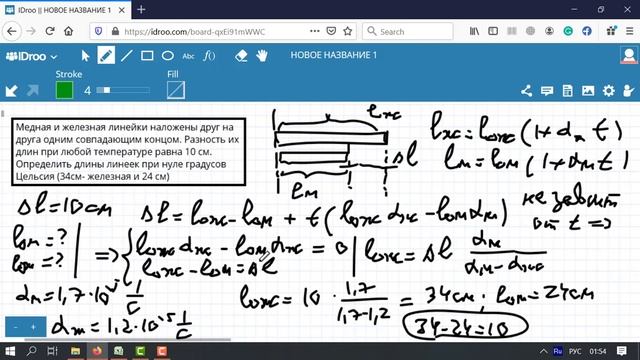 IDroo || НОВОЕ НАЗВАНИЕ 1
https://idroo.com/board-qxEi91mWWC
IDroo
НОВОЕ НАЗВАНИЕ 1
Stroke
Fill
4
Медная и железная линейки наложены друг на
друга одним совпадающим концом. Разность их
длин при любой температуре равна 10 см.
Определить длины линеек при нуле градусов
Цельсия (34см- железная и 24 см)
lж
Δl
lм
lж = l₀ж (1+αж t)
lм = l₀м (1+αм t)
Δl = 10 см
Δl = l₀ж - l₀м + t (l₀ж αж - l₀м αм)
не зависит
от t =>
l₀м = ?
l₀м = ?
=> { l₀ж αж - l₀м αж = 0
l₀ж - l₀м = Δl
l₀ж = Δl αм / (αм - αж)
αм = 1,7·10⁻⁵ 1/C
αм = 1,2·10⁻⁵ 1/C
l₀ж = 10 · 1,7 / (1,7-1,2) = 34см; l₀м = 24см
34-24=10
РУС
01:54